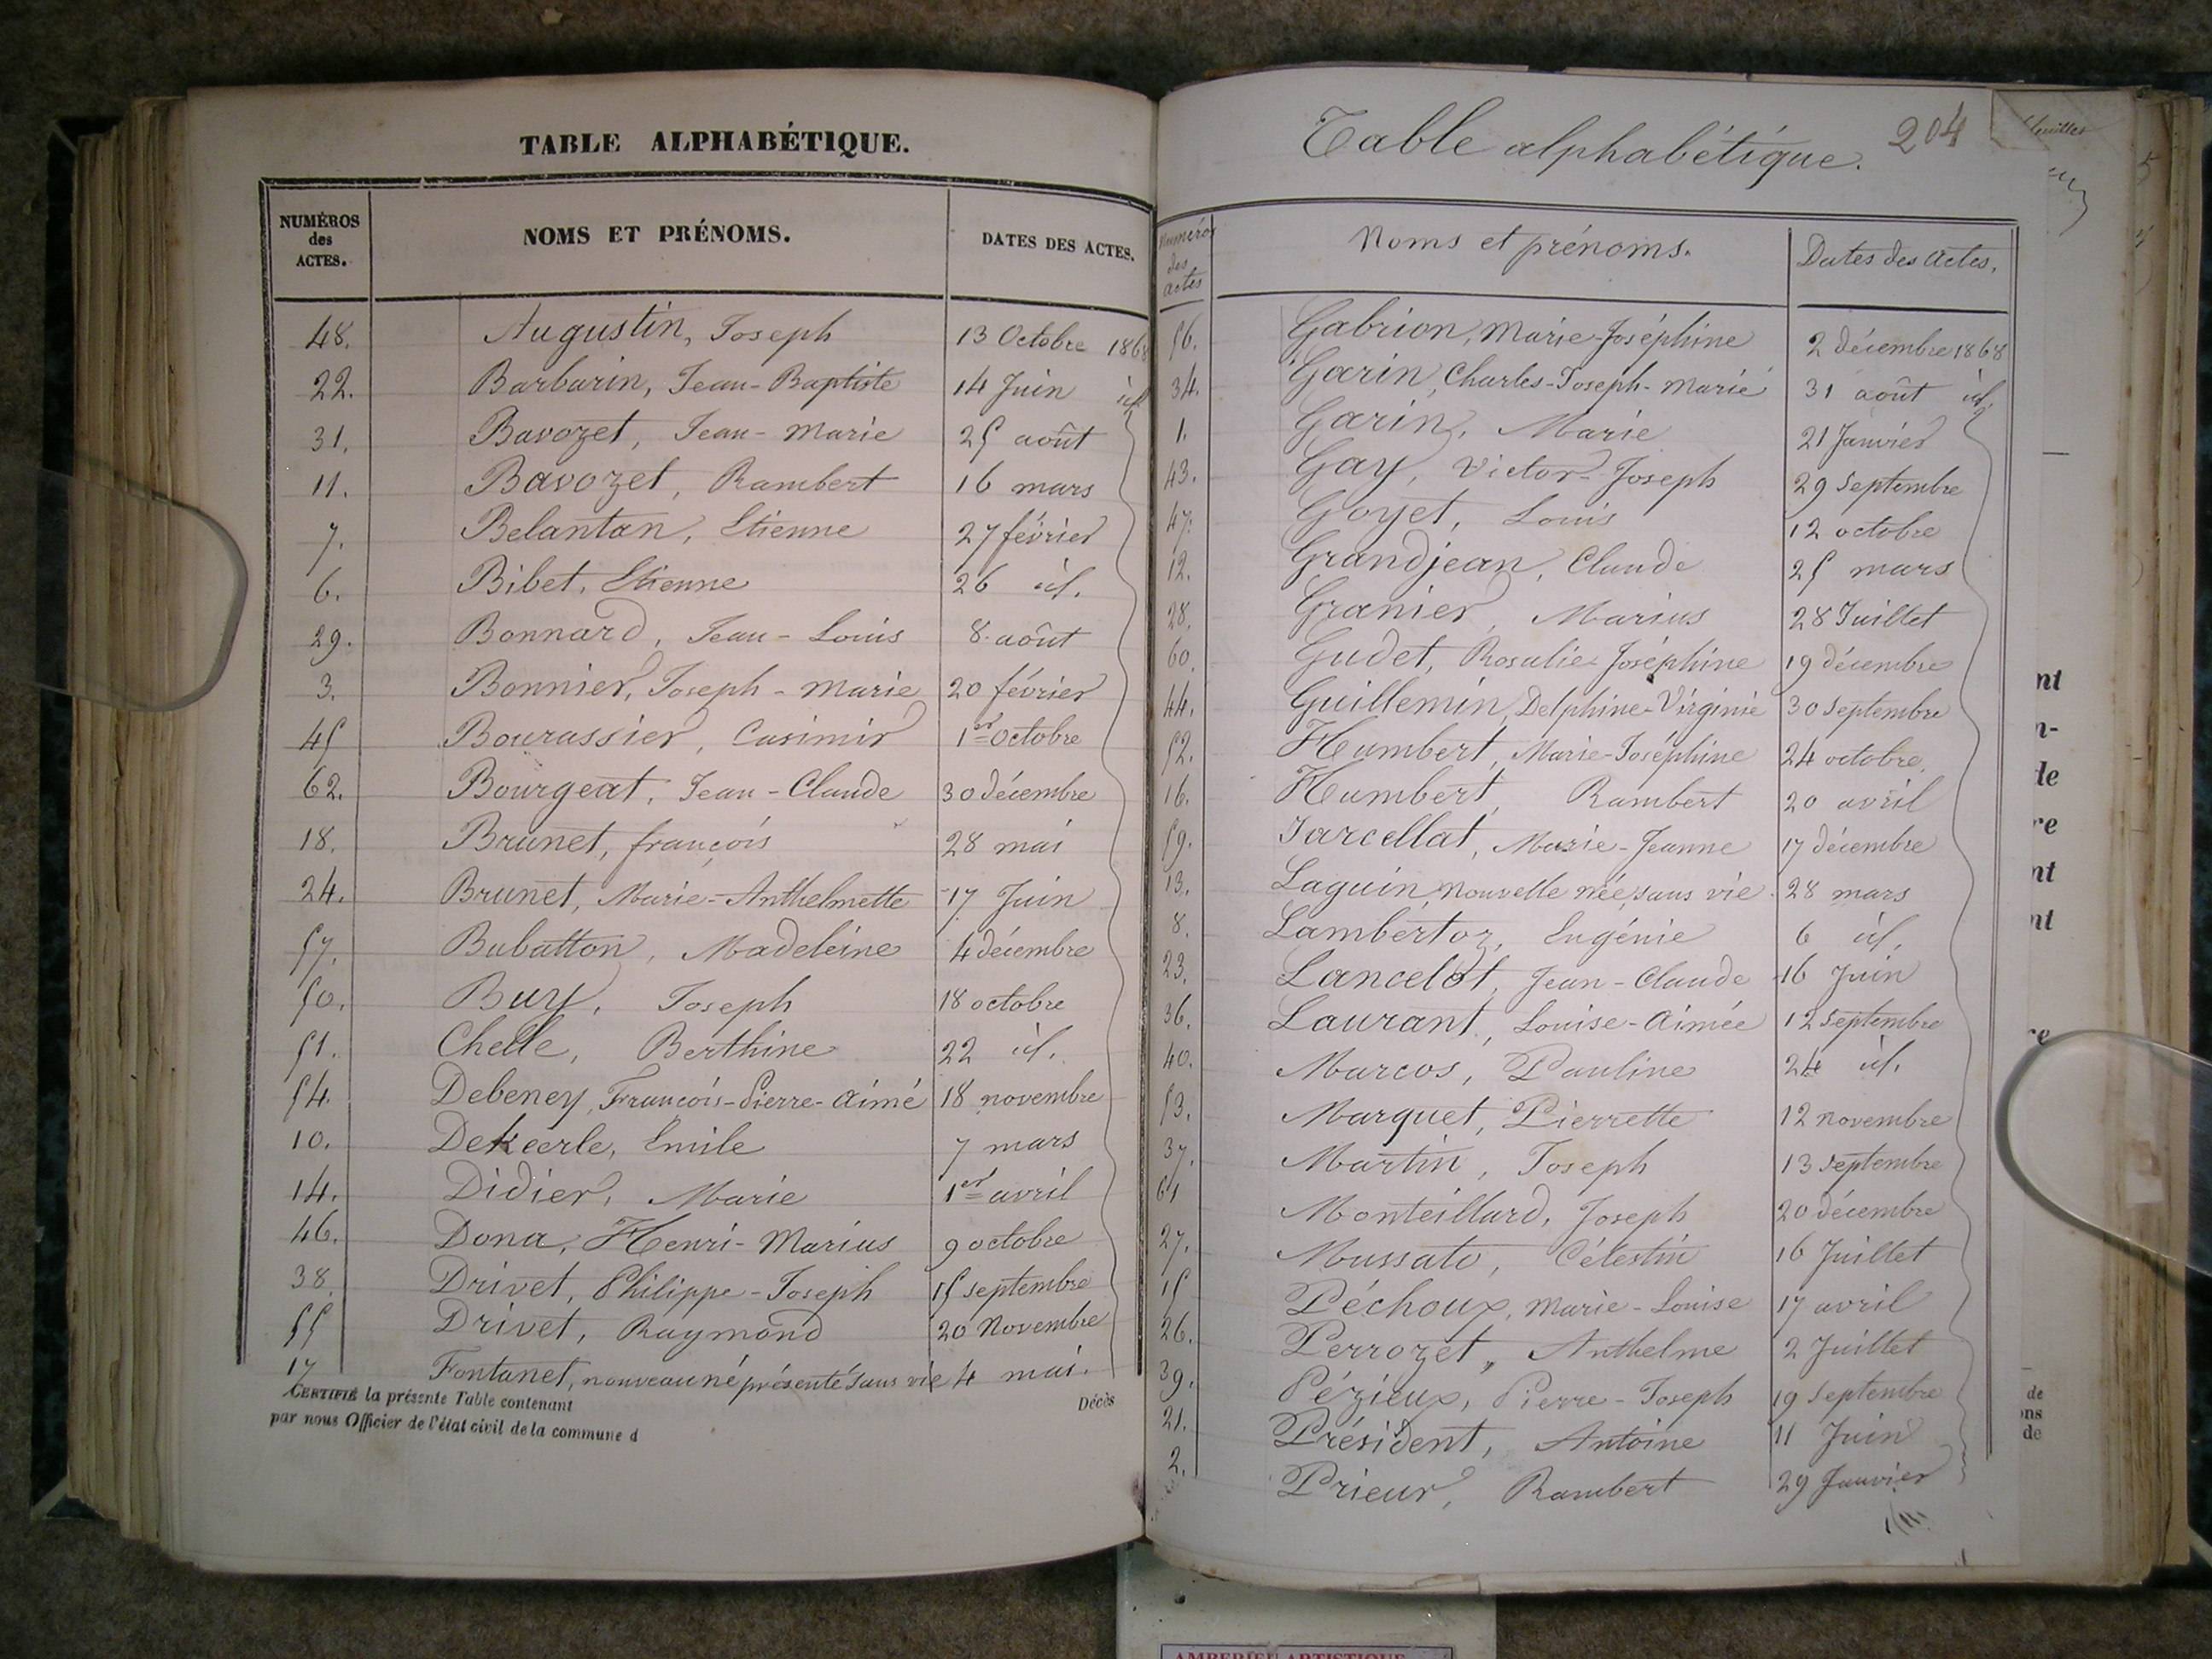 TABLE ALPHABÉTIQUE.
NUMÉROS des ACTES. NOMS ET PRÉNOMS. DATES DES ACTES.
48. Augustin, Joseph 13 Octobre 1868
22. Barbarin, Jean-Baptiste 14 Juin id.
31. Bavozet, Jean-Marie 25 août
11. Bavozet, Rambert 16 mars
7. Belantan, Etienne 27 février
6. Bibet, Etienne 26 id.
29. Bonnard, Jean-Louis 8 août
3. Bonnier, Joseph-Marie 20 février
45 Bourassier, Casimir 1er octobre
62. Bourgeat, Jean-Claude 30 décembre
18. Brunet, françois 28 mai
24. Brunet, Marie-Anthelmette 17 Juin
57. Bubatton, Madeleine 4 décembre
50. Buy, Joseph 18 octobre
51. Chelle, Berthine 22 id.
54. Debeney, François-Pierre-Aimé 18 novembre
10. Dekeerle, Emile 7 mars
14. Didier, Marie 1er avril
46. Dona, Henri-Marius 9 octobre
38. Drivet, Philippe-Joseph 15 septembre
55 Drivet, Raymond 20 Novembre
17 Fontanet, nouveau né présenté sans vie 4 mai.
CERTIFIÉ la présente Table contenant Décès
par nous Officier de l'état civil de la commune d
Table alphabétique. 204
Numéros des actes Noms et prénoms. Dates des actes.
56. Gabrion, Marie-Joséphine 2 décembre 1868
34. Garin, Charles-Joseph-Marie 31 août id.
1. Garin, Marie 21 Janvier
43. Gay, Victor-Joseph 29 Septembre
47. Goyet, Louis 12 octobre
12. Grandjean, Claude 25 mars
28. Granier, Marius 28 Juillet
60. Gudet, Rosalie-Joséphine 19 décembre
44. Guillemin, Delphine-Virginie 30 Septembre
52. Humbert, Marie-Joséphine 24 octobre.
16. Humbert, Rambert 20 avril
59. Jarcellat, Marie-Jeanne 17 décembre
13. Laguin, nouvelle née, sans vie 28 mars
8. Lambertoz, Eugénie 6 id.
23. Lancelot, Jean-Claude 16 Juin
36. Laurant, Louise-Aimée 12 Septembre
40. Marcos, Pauline 24 id.
53. Marquet, Pierrette 12 novembre
37. Martin, Joseph 13 Septembre
61 Monteillard, Joseph 20 décembre
27. Mussato, Célestin 16 Juillet
15 Péchoux, Marie-Louise 17 avril
26. Perrozet, Anthelme 2 Juillet
39. Pézieux, Pierre-Joseph 19 Septembre
21. Président, Antoine 11 Juin
2. Prieur, Rambert 29 Janvier
nt
n-
de
re
nt
nt
re
de
ons
de
AMBERIEU ARTISTIQUE